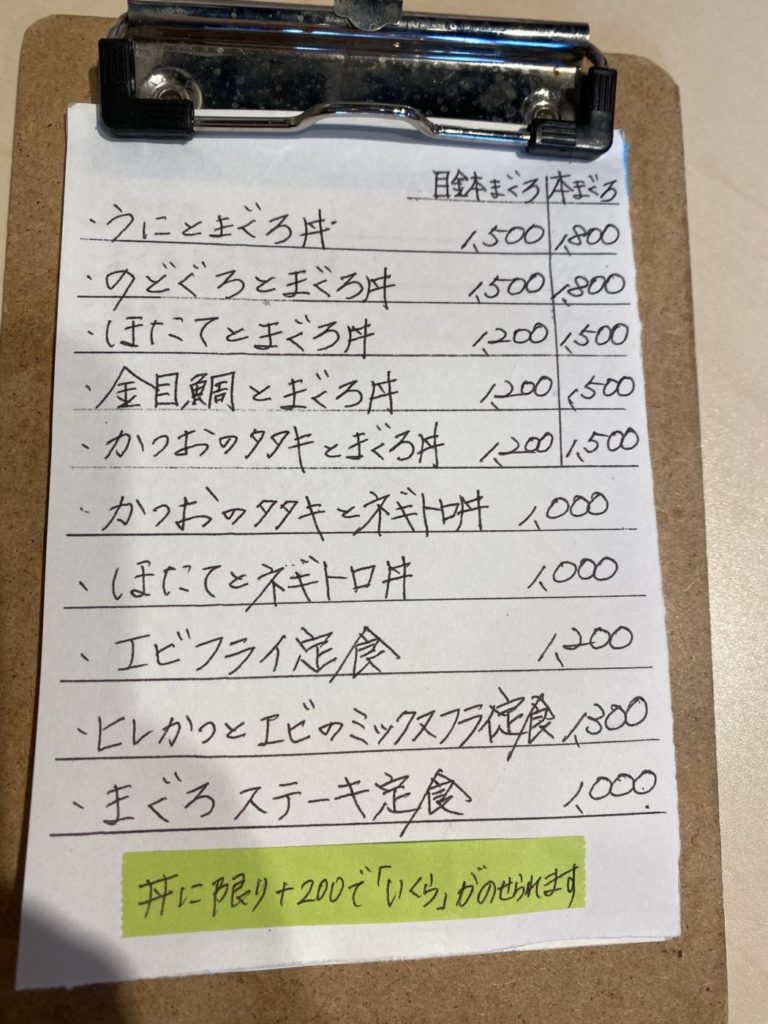 目鉢本まぐろ 本まぐろ
・うにとまぐろ丼 1,500 1,800
・のどぐろとまぐろ丼 1,500 1,800
・ほたてとまぐろ丼 1,200 1,500
・金目鯛とまぐろ丼 1,200 1,500
・かつおのタタキとまぐろ丼 1,200 1,500
・かつおのタタキとネギトロ丼 1,000
・ほたてとネギトロ丼 1,000
・エビフライ定食 1,200
・ヒレかつとエビのミックスフライ定食 1,300
・まぐろステーキ定食 1,000
丼に限り+200で「いくら」がのせられます